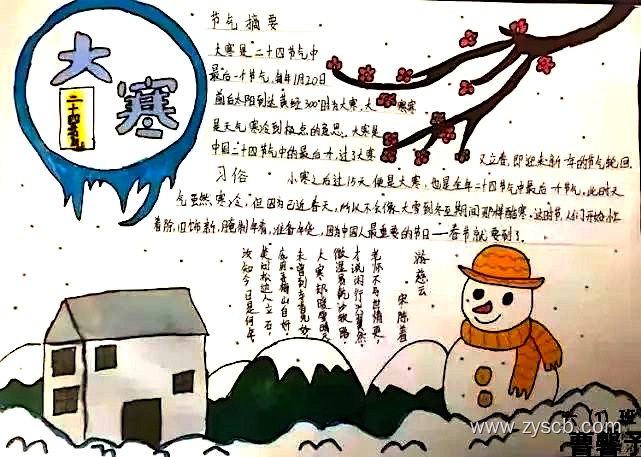 大寒
二十四节气
节气摘要
大寒是二十四节气中
最后一个节气,每年1月20日
前后太阳到达黄经300°时为大寒,大寒
是天气寒冷到极点的意思。大寒是
中国二十四节气中的最后一个,过了大寒
又立春,即迎来新一年的节气轮回.
习俗
小寒之后过15天便是大寒,也是全年二十四节气中最后一个节气,此时天
气虽然寒冷,但因为已近春天,所以不会像大雪到冬至期间那样酷寒。这时节,人们开始忙
着除旧饰新,腌制年肴,准备年货,因为中国人最重要的节日——春节就要到了.
游慈云
宋 陈著
老怀不与世情更
大寒却暖雪
汝知今日是何年
(1)班
www.zyscb.com